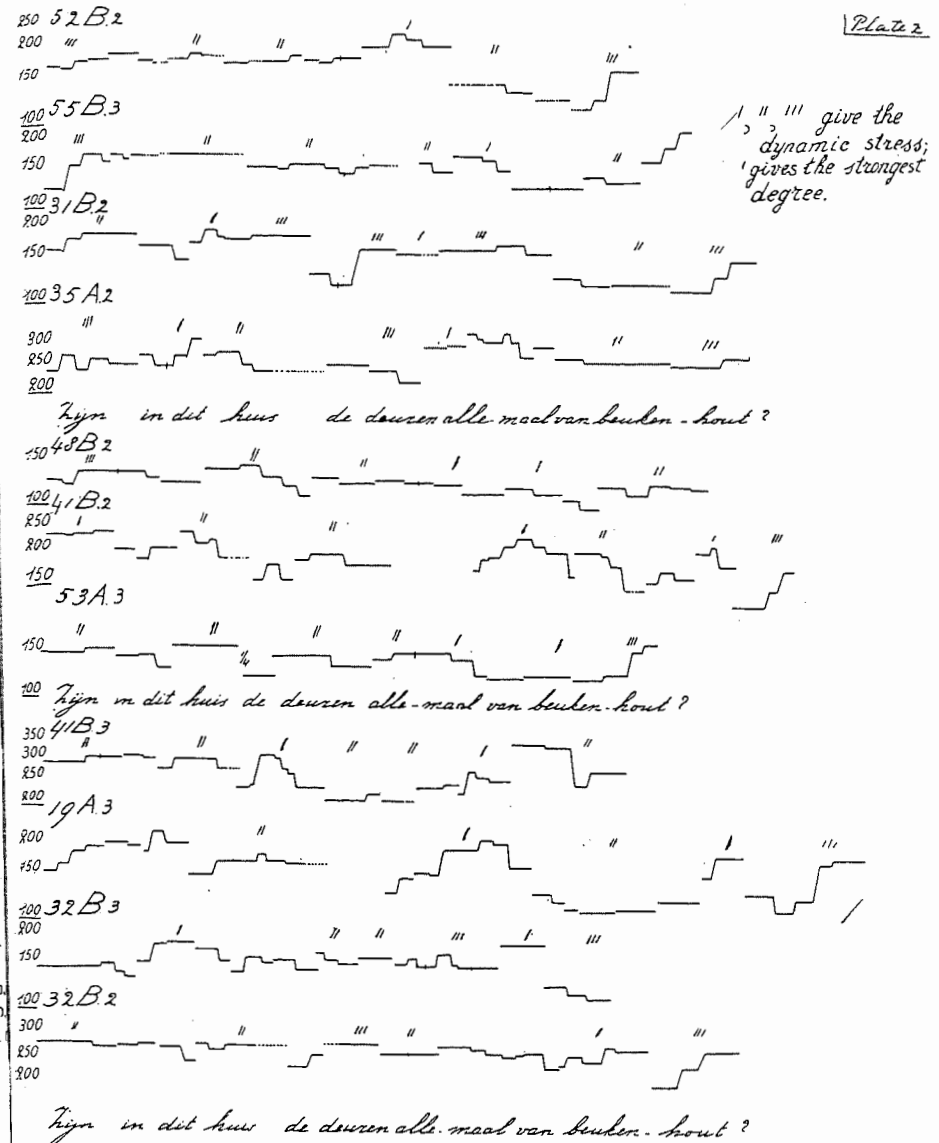 Plate 2
250 52B.2
200
150
100 55B.3
200
150
I, II, III give the
dynamic stress;
I gives the strongest
degree.
100 31B.2
200
150
100 35A.2
300
250
200
Zijn in dit huis de deuren alle-maal van beuken-hout?
150 48B2
100 41B.2
250
200
150
53A.3
150
100
Zijn in dit huis de deuren alle-maal van beuken-hout?
350 41B.3
300
250
200
19A.3
200
150
100 32B3
200
150
100 32B.2
300
250
200
Zijn in dit huis de deuren alle-maal van beuken-hout?